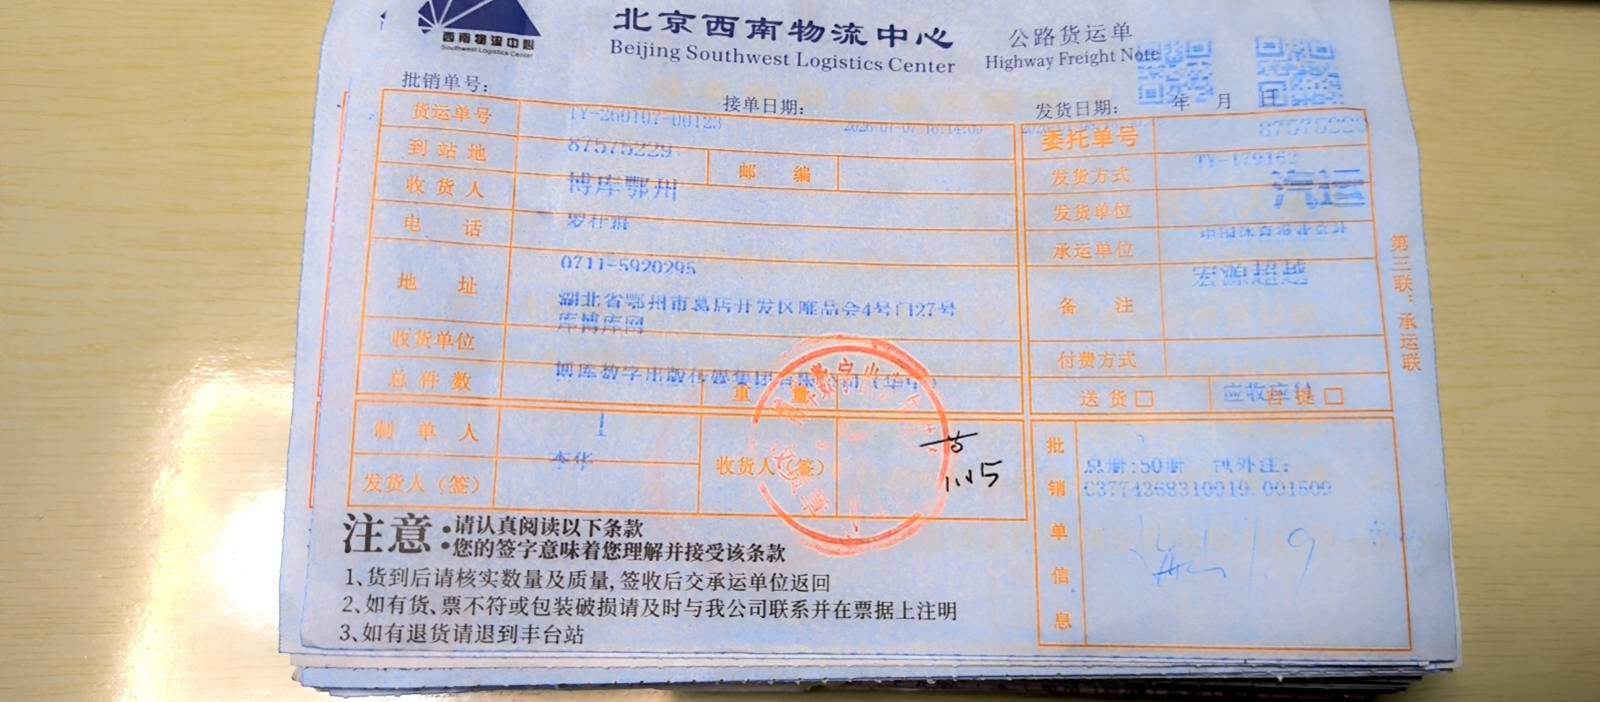 西南物流中心
Southwest Logistics Center
北京西南物流中心
Beijing Southwest Logistics Center
公路货运单
Highway Freight Note
批销单号：
接单日期：
发货日期： 年 月 日
货运单号 TY-260107-00123 2026-01-07 16:14:09
委托单号 87575229
到站地 87575229 邮编
发货方式 TY-179162
汽运
收货人 博库鄂州
发货单位
电话
承运单位
宏源超越
地址 0711-5920295
湖北省鄂州市葛店开发区唯品会4号门27号
库博库网
备注
收货单位
付费方式
总件数 博库数字出版传媒集团有限公司（华中）
重量
送货□ 自提□
应收应付
制单人 1
李华
发货人（签）
收货人（签）
11.15
批销单信息
总册:50册
63774368310019.001609
1.9
第三联：承运联
注意：请认真阅读以下条款
您的签字意味着您理解并接受该条款
1、货到后请核实数量及质量,签收后交承运单位返回
2、如有货、票不符或包装破损请及时与我公司联系并在票据上注明
3、如有退货请退到丰台站